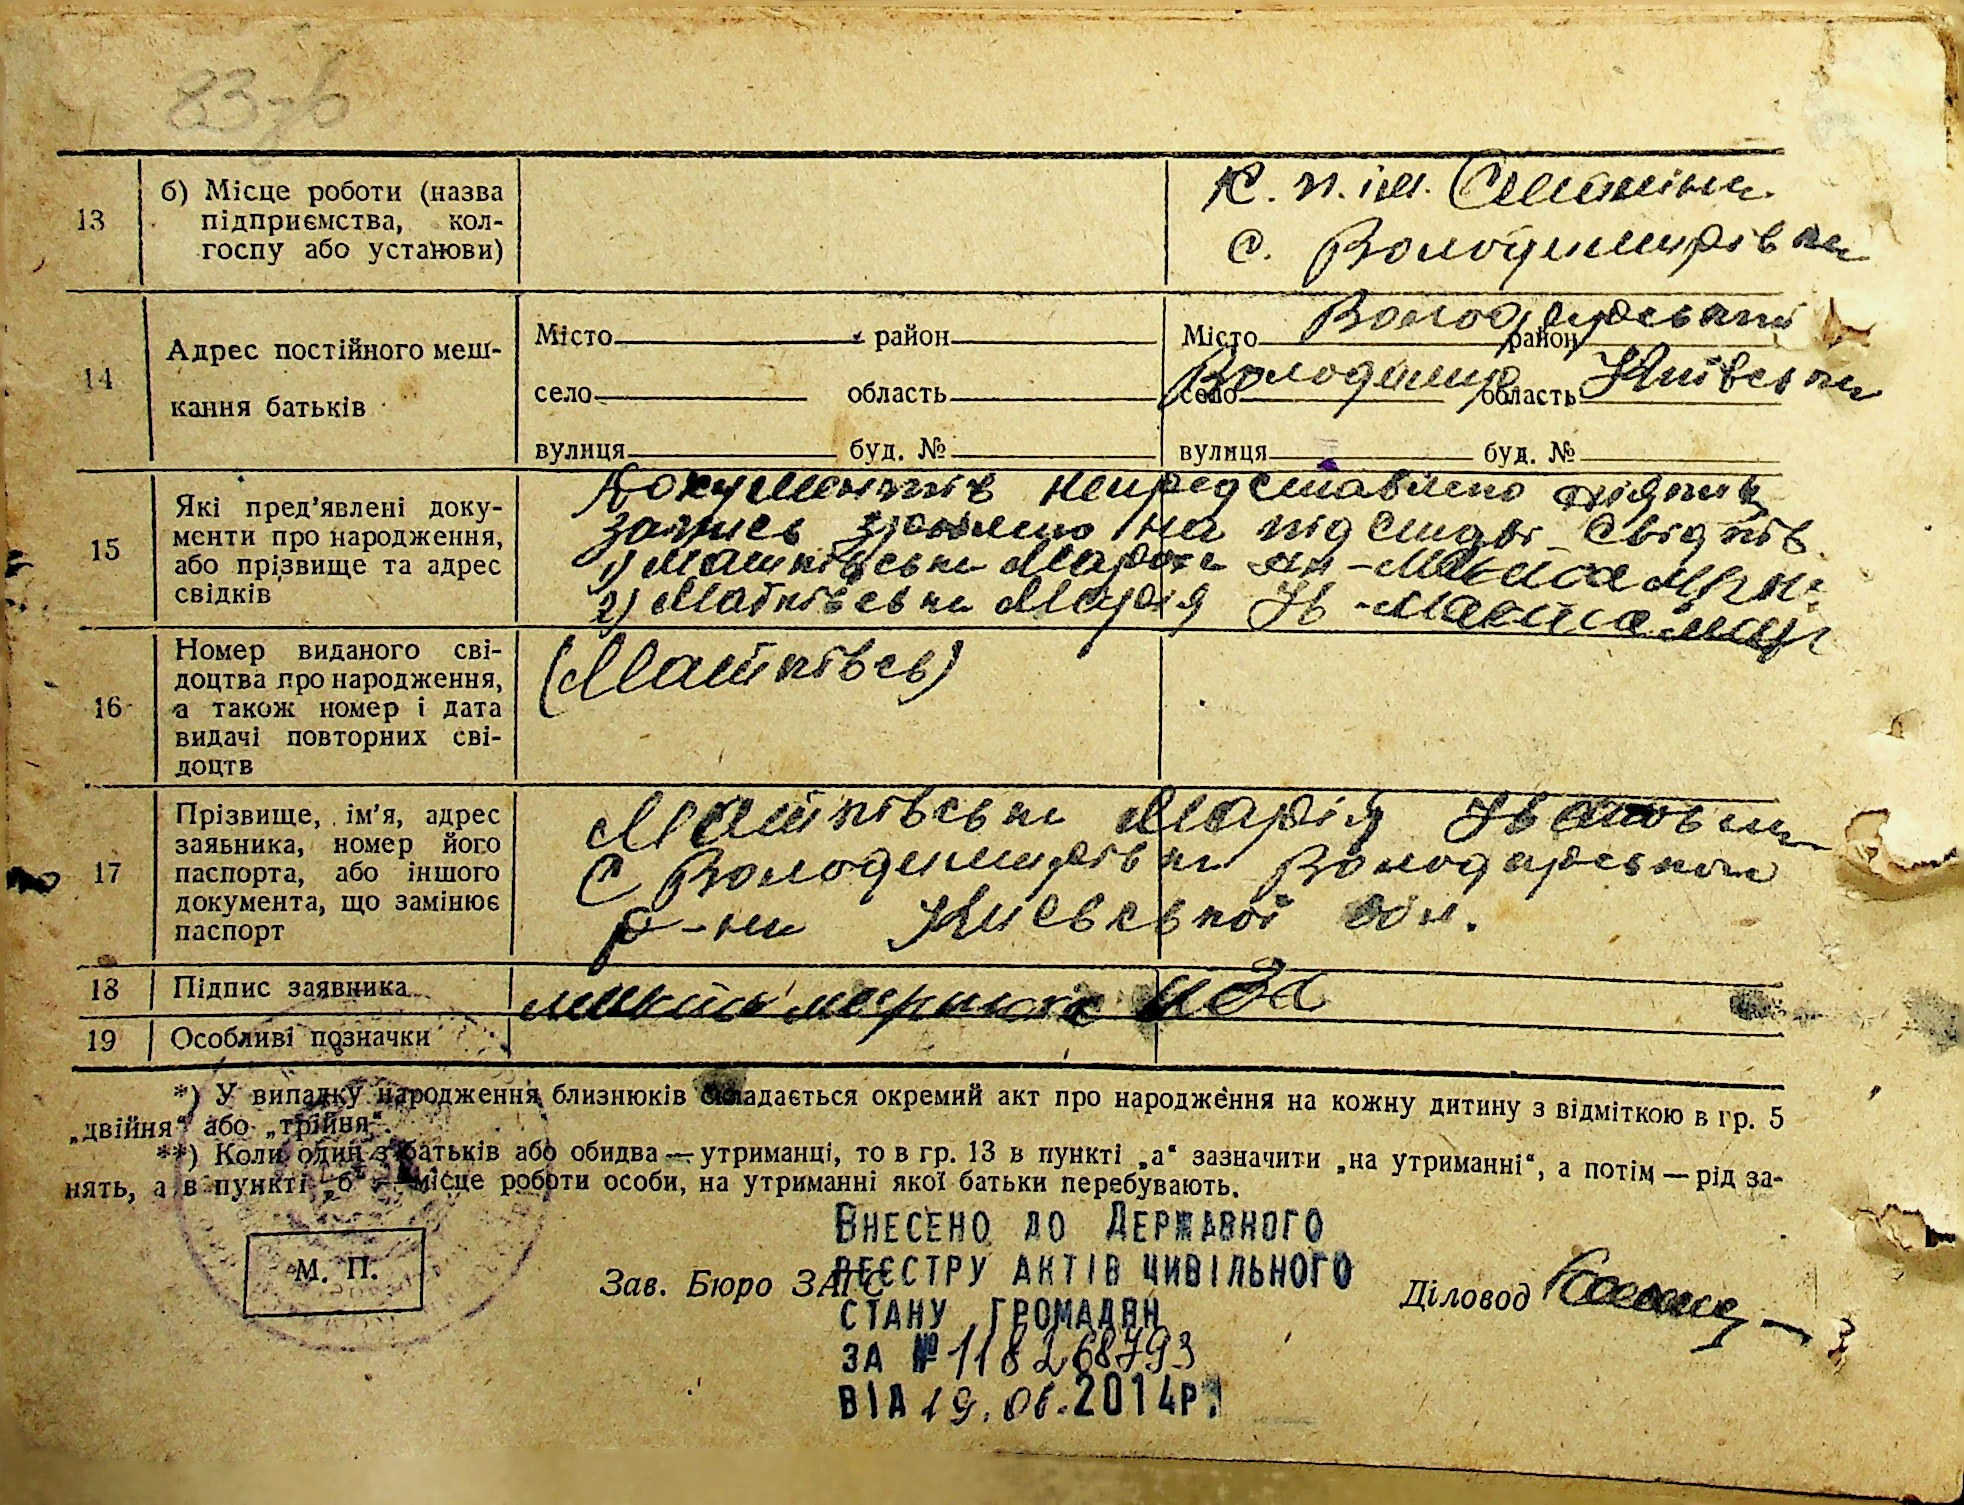 13
б) Місце роботи (назва
підприємства, кол-
госпу або установи)
к. п. ім. Сталіна
с. Володимирівка
14
Адрес постійного меш-
кання батьків
Місто район
село область
вулиця буд. №
Місто Володарський район
село Володимир область Київська
вулиця буд. №
15
Які пред'явлені доку-
менти про народження,
або прізвище та адрес
свідків
Документів непредставлено
запис зроблено на підставі свідків
1) Матківська
2) Матківська Марія Ів -
16
Номер виданого сві-
доцтва про народження,
а також номер і дата
видачі повторних сві-
доцтв
(Матківсь)
17
Прізвище, ім'я, адрес
заявника, номер його
паспорта, або іншого
документа, що замінює
паспорт
Матківська Марія Івановна
с Володимирівка Володарського
р-на Київської обл.
18
Підпис заявника
19
Особливі позначки
*) У випадку народження близнюків складається окремий акт про народження на кожну дитину з відміткою в гр. 5
„двійня“ або „трійня“.
**) Коли один з батьків або обидва — утриманці, то в гр. 13 в пункті „а“ зазначити „на утриманні“, а потім — рід за-
нять, а в пункті „б“ — місце роботи особи, на утриманні якої батьки перебувають.
М. П.
Зав. Бюро ЗАГС
Діловод
Внесено до Державного
реєстру актів цивільного
стану громадян
за № 118268793
від 19.06.2014р.